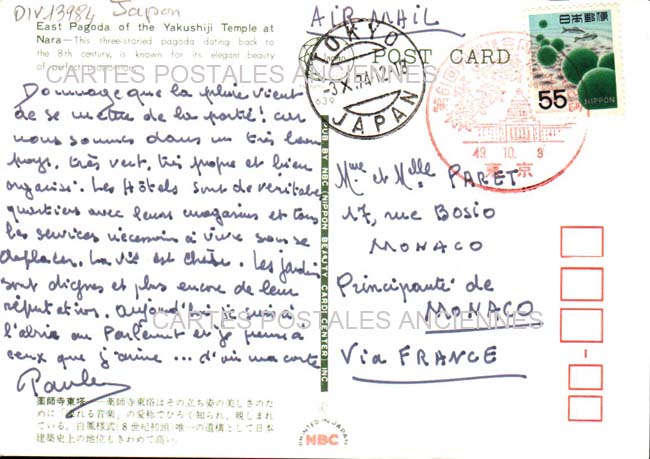 DIV13984 Japan
East Pagoda of the Yakushiji Temple at
Nara — This three-storied pagoda dating back to
the 8th century, is known for its elegant beauty
of perfect
CARTES POSTALES ANCIENNES
Dommage que la pluie vient
de se mettre de la partie! car
nous sommes dans un très beau
pays, très vert, très propre et bien
organisé. Les Hôtels sont de véritables
quartiers avec leurs magasins et tous
les services nécessaires à vivre sans se
déplacer. La vie est chère. Les jardins
sont dignes et plus encore de leur
réputation. Aujourd'hui je suis à
l'abri au Parlement et je pense à
ceux que j'aime ... d'où ma carte
薬師寺東塔——薬師寺東塔はその立ち姿の美しさのた
めに「凍れる音楽」の愛称でひろく知られ、親しまれ
ている。白鳳様式(8世紀初頭)唯一の遺構として日本
建築史上の地位もきわめて高い。
PUB. BY NBC (NIPPON BEAUTY CARD CENTER) INC.
AIR MAIL
POST CARD
TOKYO
-3.X.74.12-18
JAPAN
639
日本郵便
55
NIPPON
第61回
49.10.3
東京
Mme et Melle PARET
17, rue Bosio
MONACO
Principauté de
MONACO
Via FRANCE
CARTES POSTALES ANCIENNES
PRINTED IN JAPAN
NBC